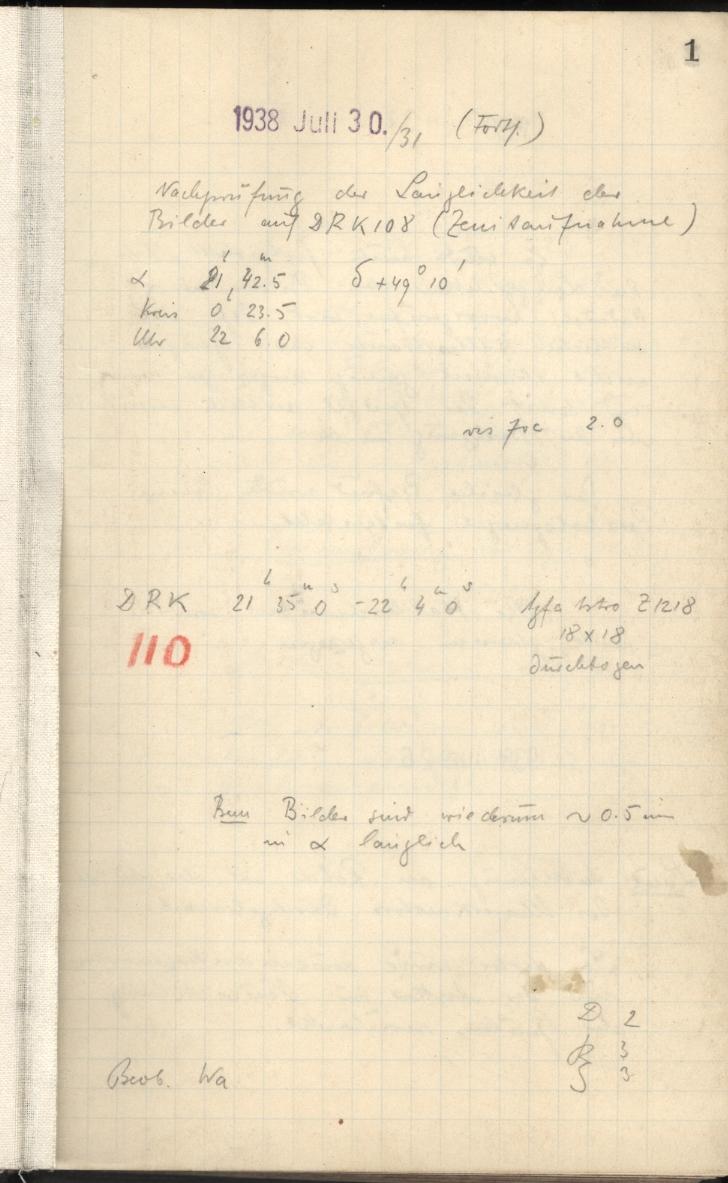 1
1938 Juli 30./31 (Forts.)
Nachprüfung der Länglichkeit der
Bilder auf DRK108 (Zenitaufnahme)
α 21h 42.5m δ +49° 10'
Kreis 0 23.5
Uhr 22 6.0
vis foc 2.0
DRK 21h 35m 0s - 22h 4m 0s Agfa Astro Z1218
110 18 x 18
durchbogen
Bem Bilder sind wiederum ~ 0.5 mm
in α länglich
D 2
R 3
S 3
Beob. Wa